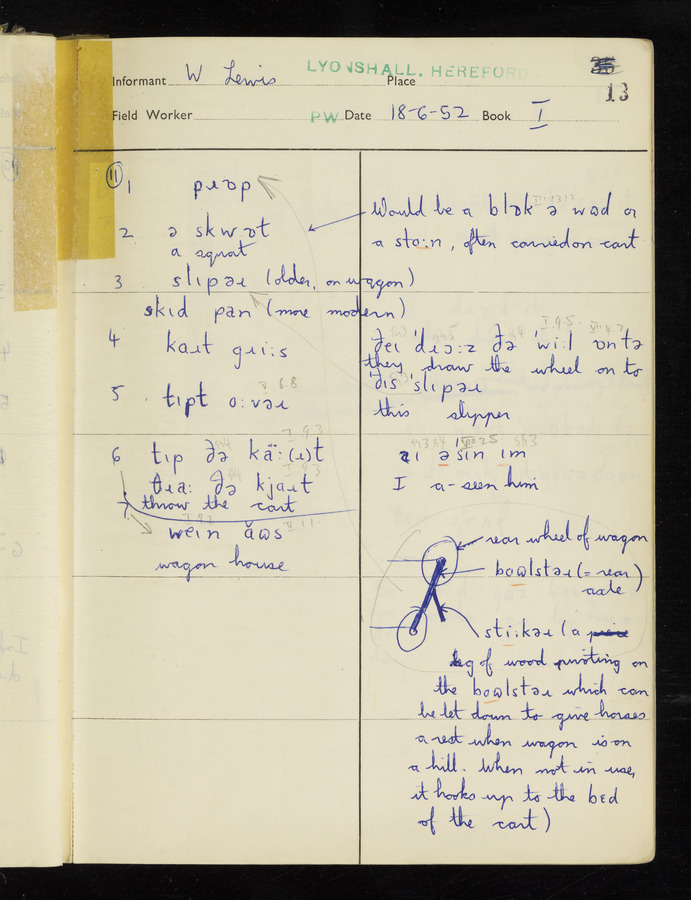 LYONSHALL, HEREFORD
Informant W Lewis Place
13
Field Worker PW Date 18-6-52 Book I
(11) 1 pɹɒp
2 ə skwɒt
a squat
3 slipəɹ (older, on wagon)
skid pan (more modern)
4 kaɹt gɹiːs
5 tɪpt oːvəɹ
V 6.8
I 9.3
6 tɪp ðə käː(ɹ)t
I 9.3
θɹaː ðə kjaɹt
7 throw the cart
I 9.2
wein ăʊs
II 1.1
wagon house
Would be a blɒk ə wʊd or
a stoːn, often carried on cart
I 9.5
ðei 'dɹɔːz ðə 'wiːl ɒntə
they draw the wheel on to
ðis 'slipəɹ
this slipper
VIII 2.5
ai əsin im
I a-seen him
rear wheel of wagon
boʊlstəɹ (= rear)
axle
stiːkəɹ (a
leg of wood pivoting on
the boʊlstəɹ which can
be let down to give horses
a rest when wagon is on
a hill. When not in use,
it hooks up to the bed
of the cart)